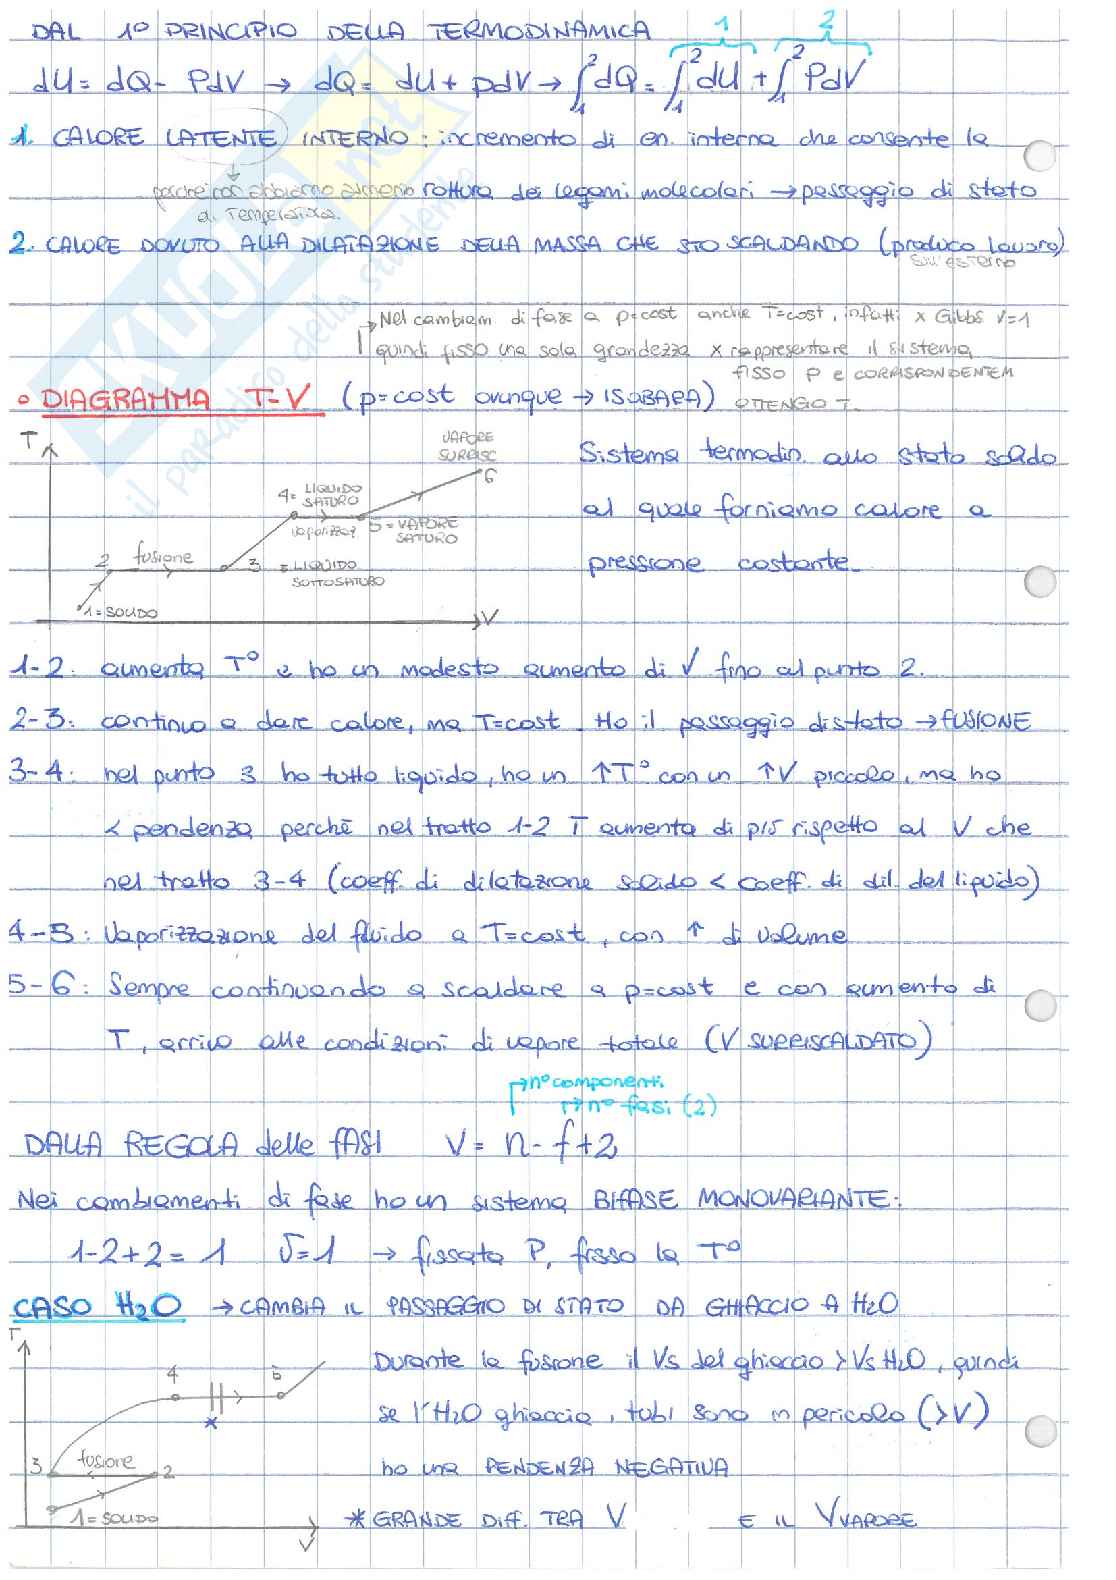 DAL 1° PRINCIPIO DELLA TERMODINAMICA
1 2
dU = dQ - PdV → dQ = dU + pdV → ∫₁² dQ = ∫₁² dU + ∫₁² PdV
1. CALORE LATENTE INTERNO: incremento di en. interna che consente la
rottura dei legami molecolari → passaggio di stato
perchè non abbiamo aumento
di Temperatura.
2. CALORE DOVUTO ALLA DILATAZIONE DELLA MASSA CHE STO SCALDANDO (produco lavoro)
sull'esterno
→ Nel cambiam di fase a p=cost anche T=cost, infatti x Gibbs V=1
quindi fisso una sola grandezza x rappresentare il sistema
FISSO P e CORRISPONDENTEM
OTTENGO T.
• DIAGRAMMA T-V (p=cost ovunque → ISOBARA)
T
VAPORE
SURRISC
6
4= LIQUIDO
SATURO
vaporizzaz
5 = VAPORE
SATURO
2 fusione
3 = LIQUIDO
SOTTOSATURO
1 = SOLIDO
V
Sistema termodin. allo stato solido
al quale forniamo calore a
pressione costante.
1-2: aumenta T° e ho un modesto aumento di V fino al punto 2.
2-3: continuo a dare calore, ma T=cost. Ho il passaggio di stato → FUSIONE
3-4: nel punto 3 ho tutto liquido, ho un ↑T° con un ↑V piccolo, ma ho
< pendenza perchè nel tratto 1-2 T aumenta di più rispetto al V che
nel tratto 3-4 (coeff. di dilatazione solido < coeff. di dil. del liquido)
4-5: Vaporizzazione del fluido a T=cost, con ↑ di volume
5-6: Sempre continuando a scaldare a p=cost e con aumento di
T, arrivo alle condizioni di vapore totale (V SURRISCALDATO)
→ n° componenti
→ n° fasi (2)
DALLA REGOLA delle FASI V = n - f + 2
Nei cambiamenti di fase ho un sistema BIFASE MONOVARIANTE:
1-2+2 = 1 V=1 → fissata P, fisso la T°
CASO H₂O → CAMBIA IL PASSAGGIO DI STATO DA GHIACCIO A H₂O
T
4 5
*
3 fusione 2
1 = SOLIDO
V
Durante la fusione il Vs del ghiaccio > Vs H₂O, quindi
se l'H₂O ghiaccia, i tubi sono in pericolo (>V)
ho una PENDENZA NEGATIVA
* GRANDE DIFF. TRA V E IL V VAPORE
SKUOLA.net
il paradiso dello studente